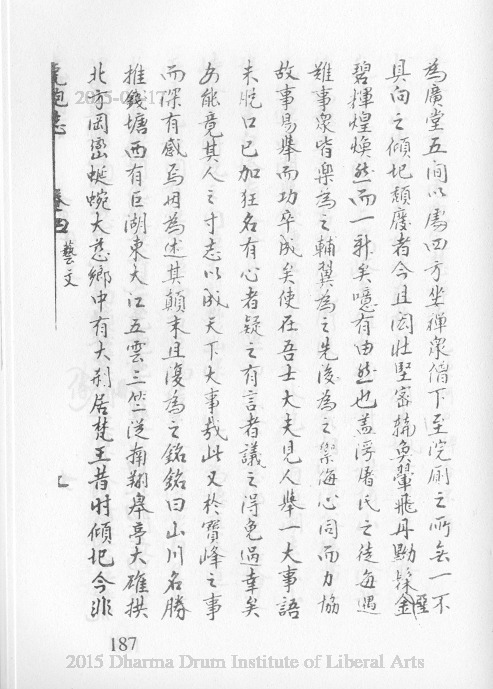 為廣堂五間以處四方坐禪衆僧下至㴆廁之所無一不
具向之傾圮頹廢者今且閎壮堅密楠奐翬飛丹黝髹金
碧輝煌煥然而一新矣噫有由然也蓋浮屠氏之徒每遇
難事衆皆樂為之輔翼為之先後為之禦侮心同而力協
故事易舉而功卒成矣使在吾士大夫見人舉一大事語
未脫口已加狂名有心者疑之有言者議之得免過幸矣
安能竟其人之寸志以成天下大事哉此又於寶峰之事
而深有感焉因為述其顛末且復為之銘銘曰山川名勝
推錢塘西有巨湖東大江五雲三竺從南翔皋亭大雄拱
北方岡巒蜒蜿大慈鄉中有大刹居梵王昔时傾圮今非
虎跑志 卷四 藝文 七
187
2015-03-17
2015 Dharma Drum Institute of Liberal Arts